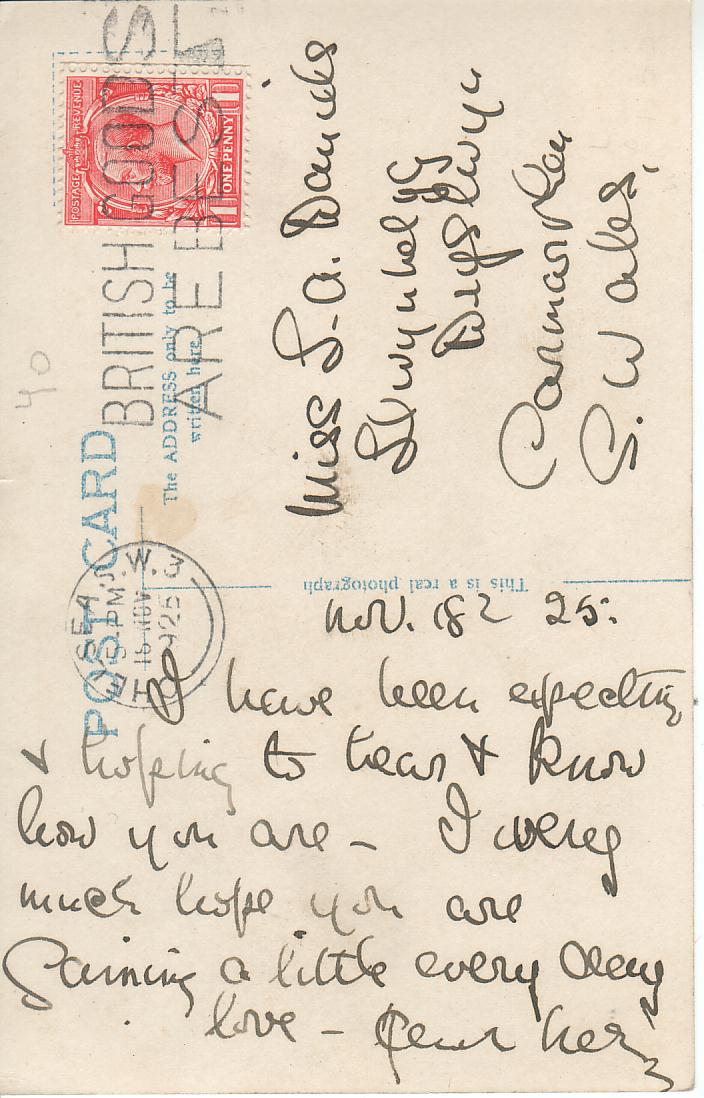 POST CARD
The ADDRESS only to be
written here.
POSTAGS REVENUE
ONE PENNY
BRITISH GOODS
ARE BEST
CHELSEA S.W.3
5 PM
15 NOV
1925
40
This is a real photograph
Miss S. A. Daniels
S. Wales.
Nov. 25.
I have been expecting
& hoping to hear & know
how you are – I very
much hope you are
gaining a little every day
love –